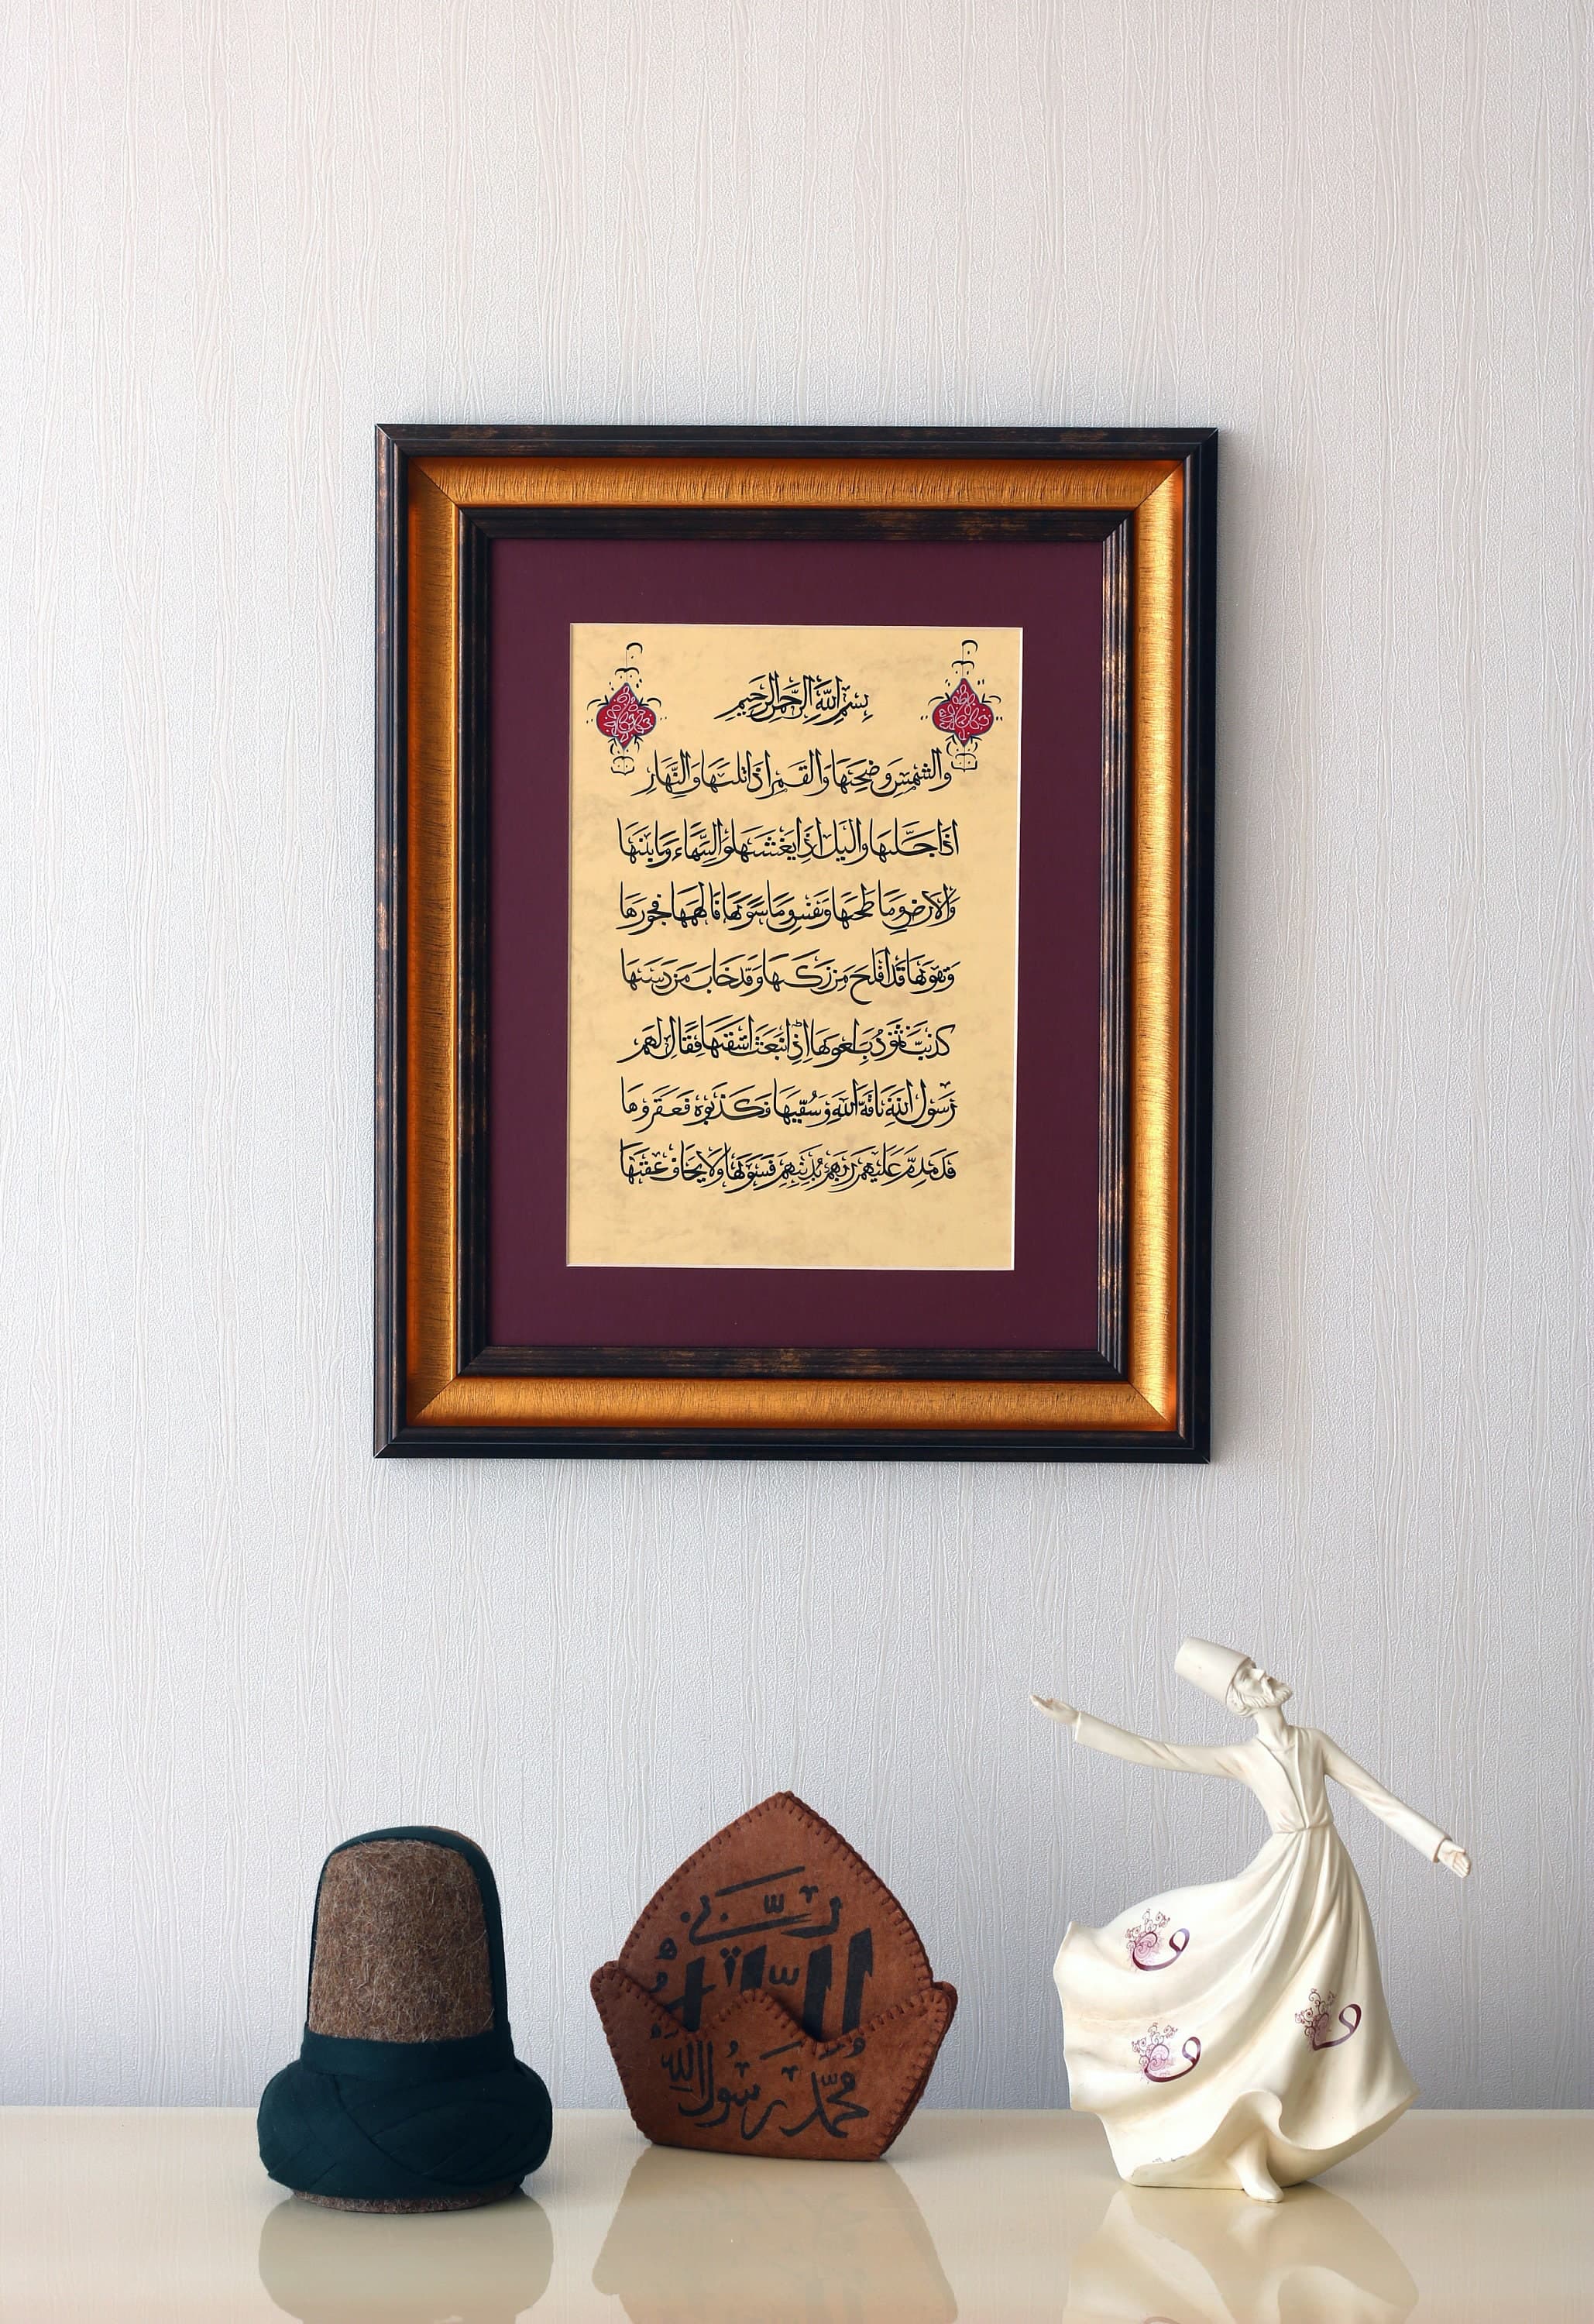 بسم الله الرحمن الرحيم
والشمس وضحىها والقمر اذا تلىها والنهار
اذا جلىها واليل اذا يغشىها والسماء وما بنىها
والارض وما طحىها ونفس وما سوىها فالهمها فجورها
وتقوىها قد افلح من زكىها وقد خاب من دسىها
كذبت ثمود بطغوىها اذ انبعث اشقىها فقال لهم
رسول الله ناقة الله وسقيىها فكذبوه فعقروها
فدمدم عليهم ربهم بذنبهم فسوىها ولا يخاف عقبىها
محمد رسول الله
و
و
و